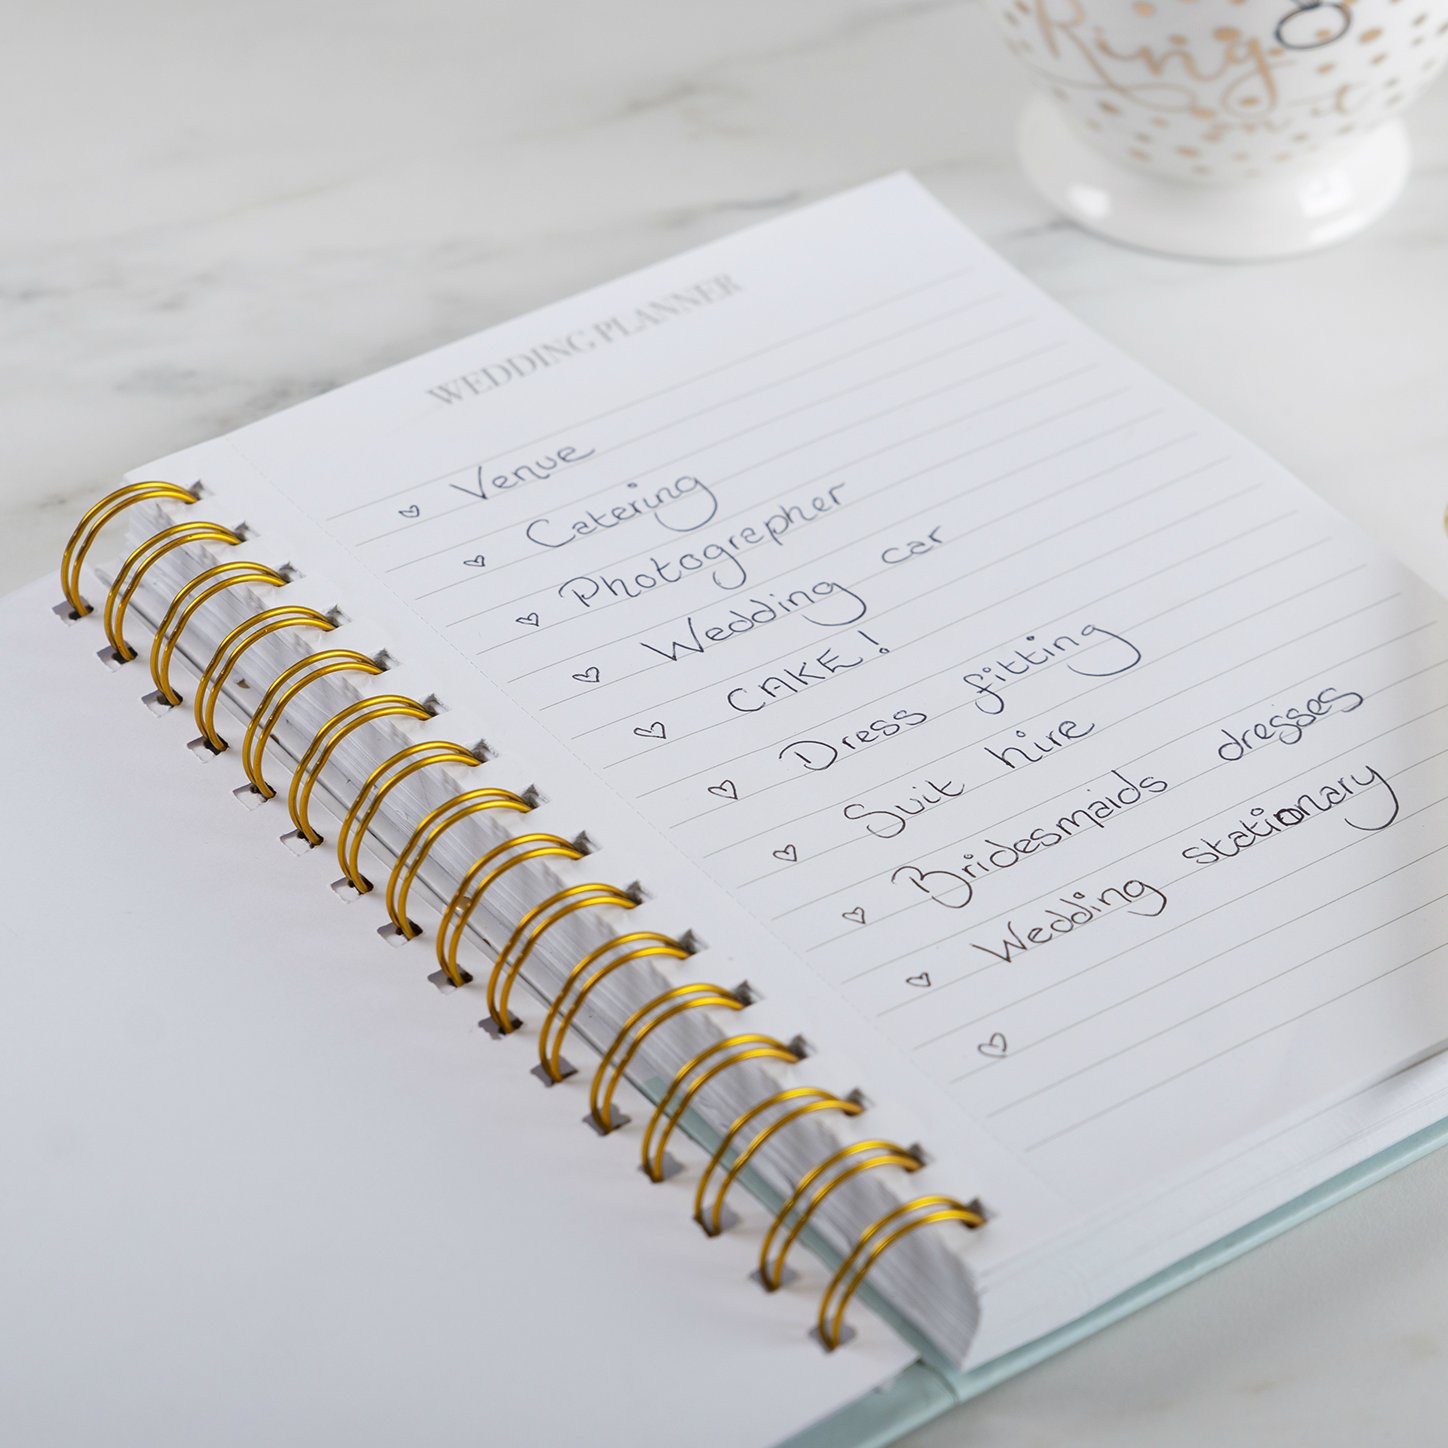 Ring
on it
WEDDING PLANNER
♡ Venue
♡ Catering
♡ Photographer
♡ Wedding car
♡ CAKE!
♡ Dress fitting
♡ Suit hire
♡ Bridesmaids dresses
♡ Wedding stationary
♡